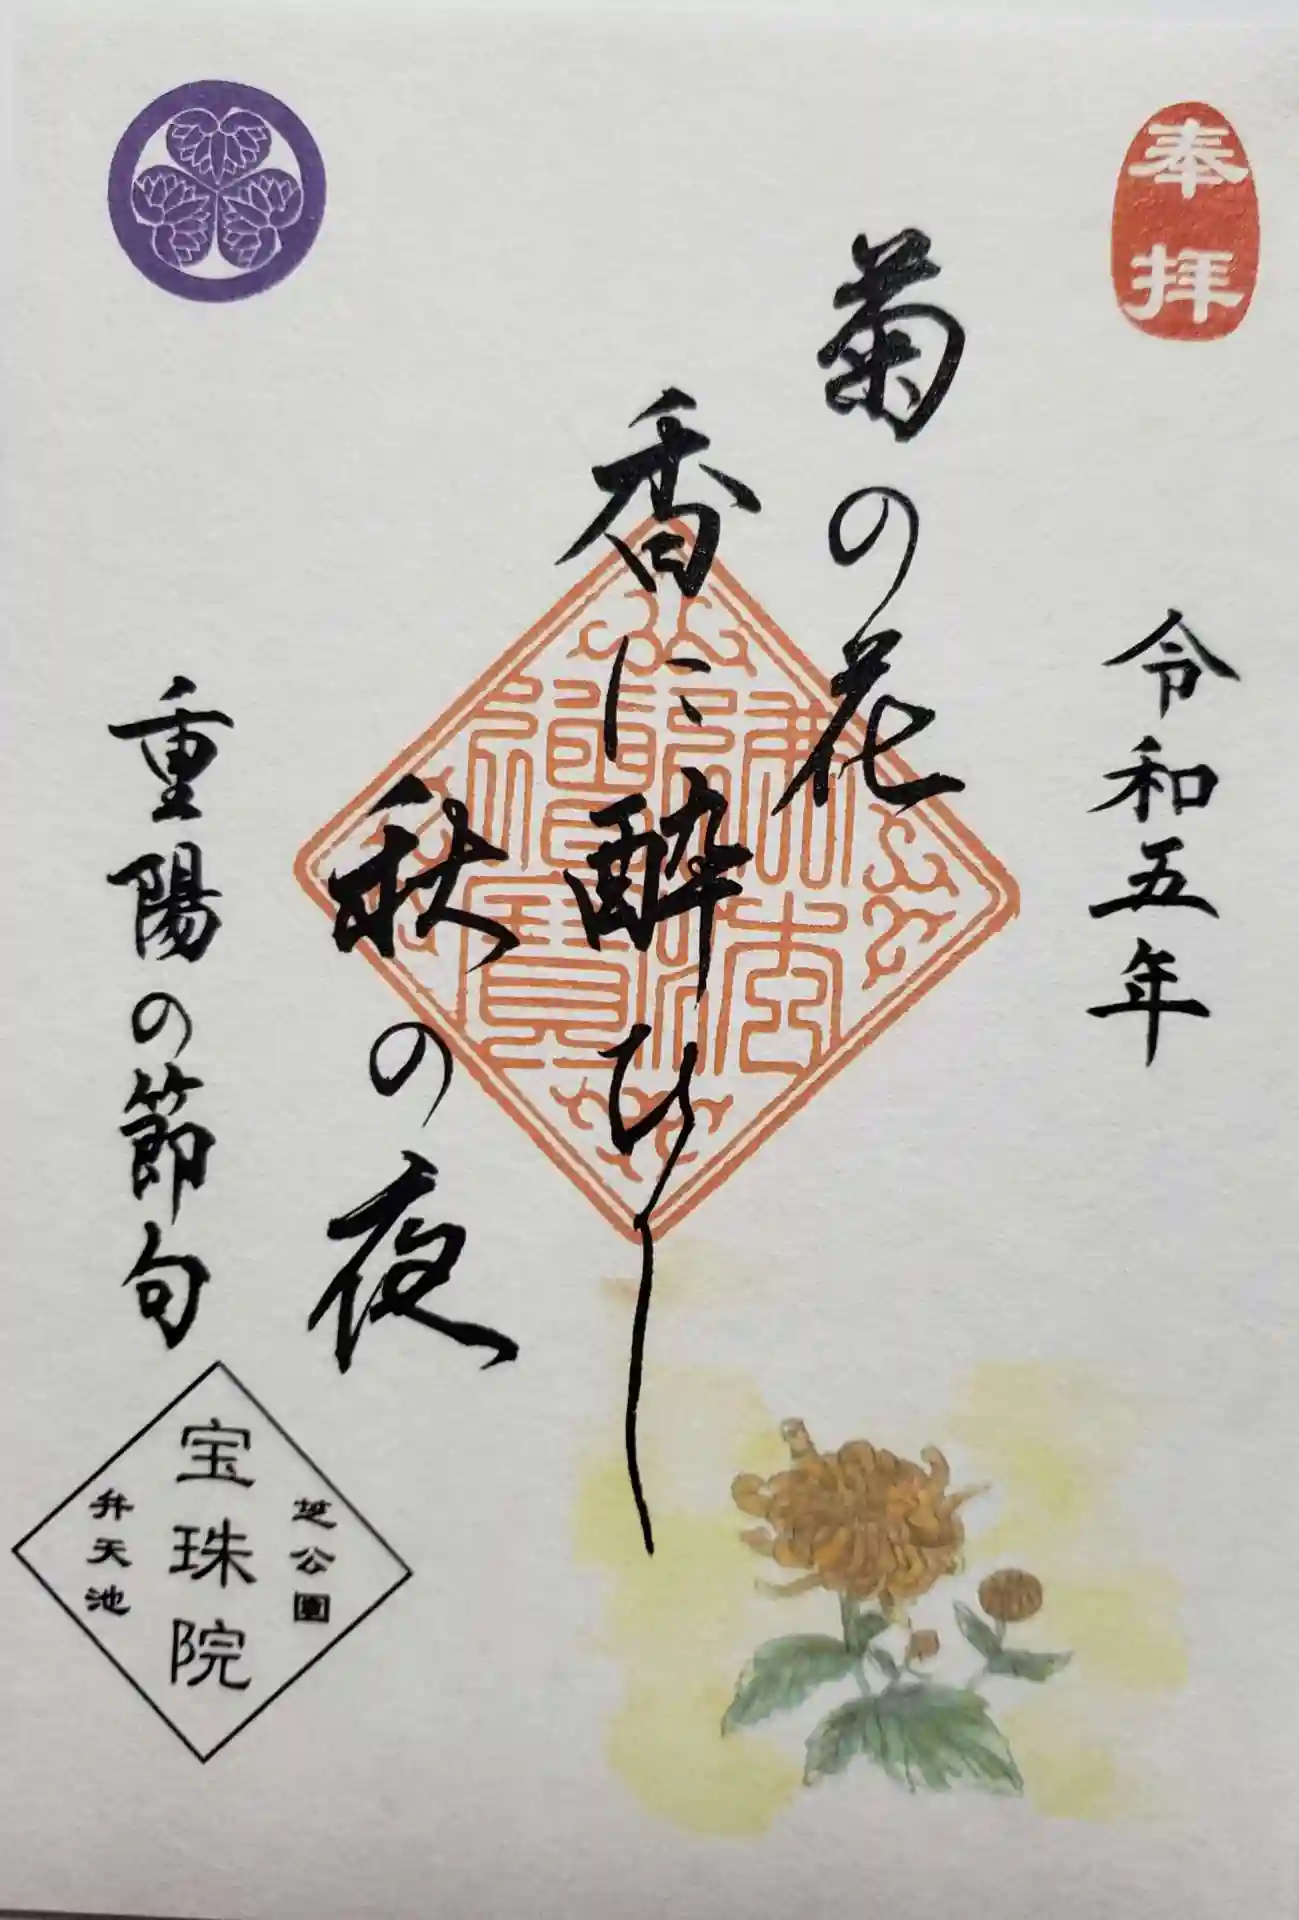 奉拝
令和五年
菊の花
香に酔ひし
秋の夜
重陽の節句
芝公園
宝珠院
弁天池
佛法僧寶